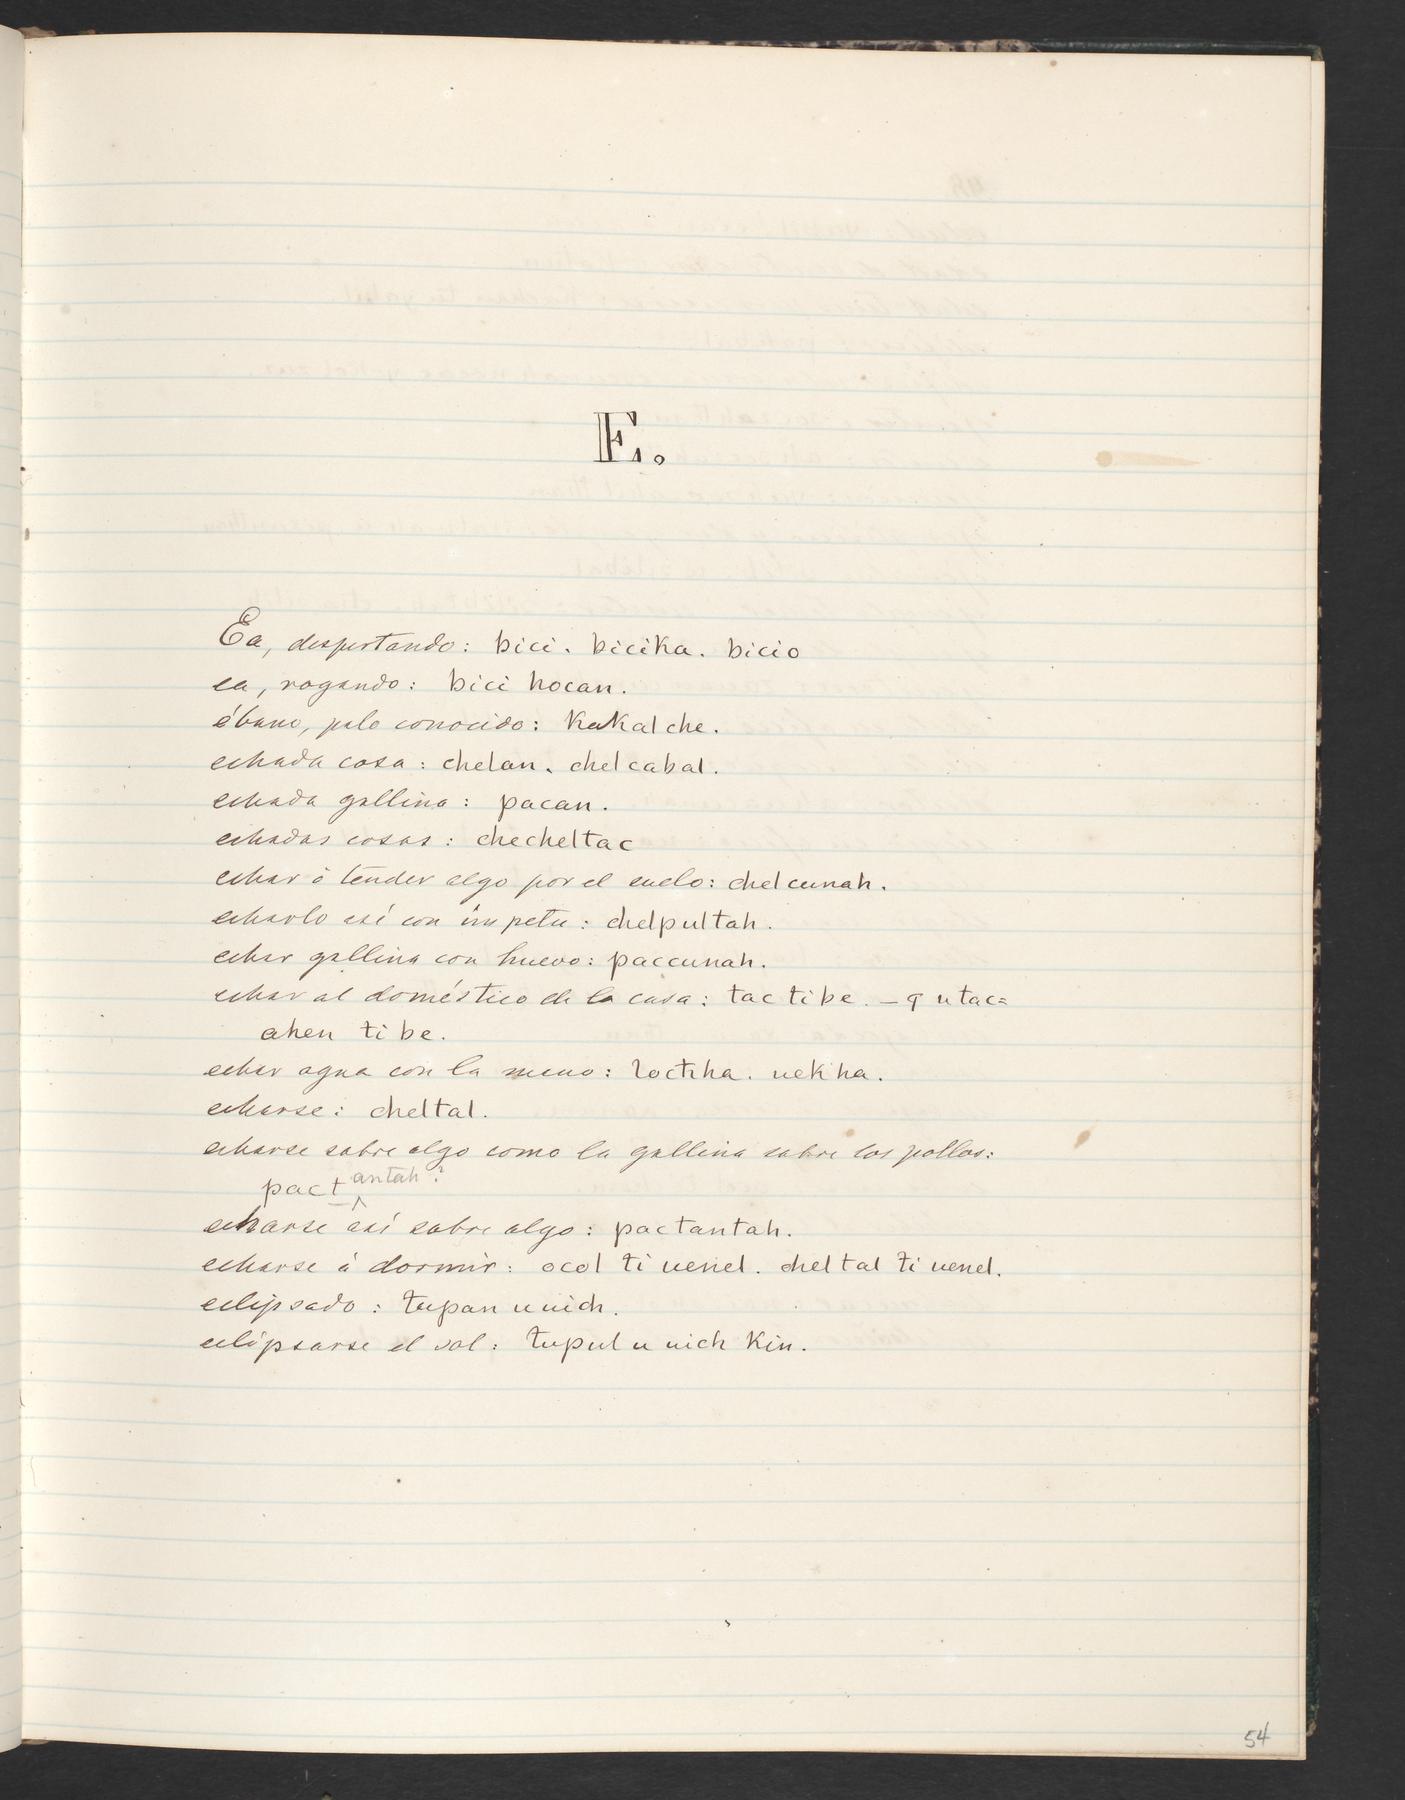 E.
Ea, despertando: bici. bicika. bicio
ea, rogando: bici hocan.
ébano, palo conocido: Kukalche.
echada cosa: chelan. chelcabal.
echada gallina: pacan.
echadas cosas: checheltac
echar ó tender algo por el suelo: chelcunah.
echarlo asi con ímpetu: chelpultah.
echar gallina con huevo: paccunah.
echar al doméstico de la casa: tac ti be. — q utac=
ahen ti be.
echar agua con la mano: loctiha. uekha.
echarse: cheltal.
echarse sobre algo como la gallina sobre los pollos:
pact antah?
echarse asi sobre algo: pactantah.
echarse á dormir: ocol ti uenel. cheltal ti uenel.
eclipsado: tupan u uich.
eclipsarse el sol: tupul u uich Kin.
54